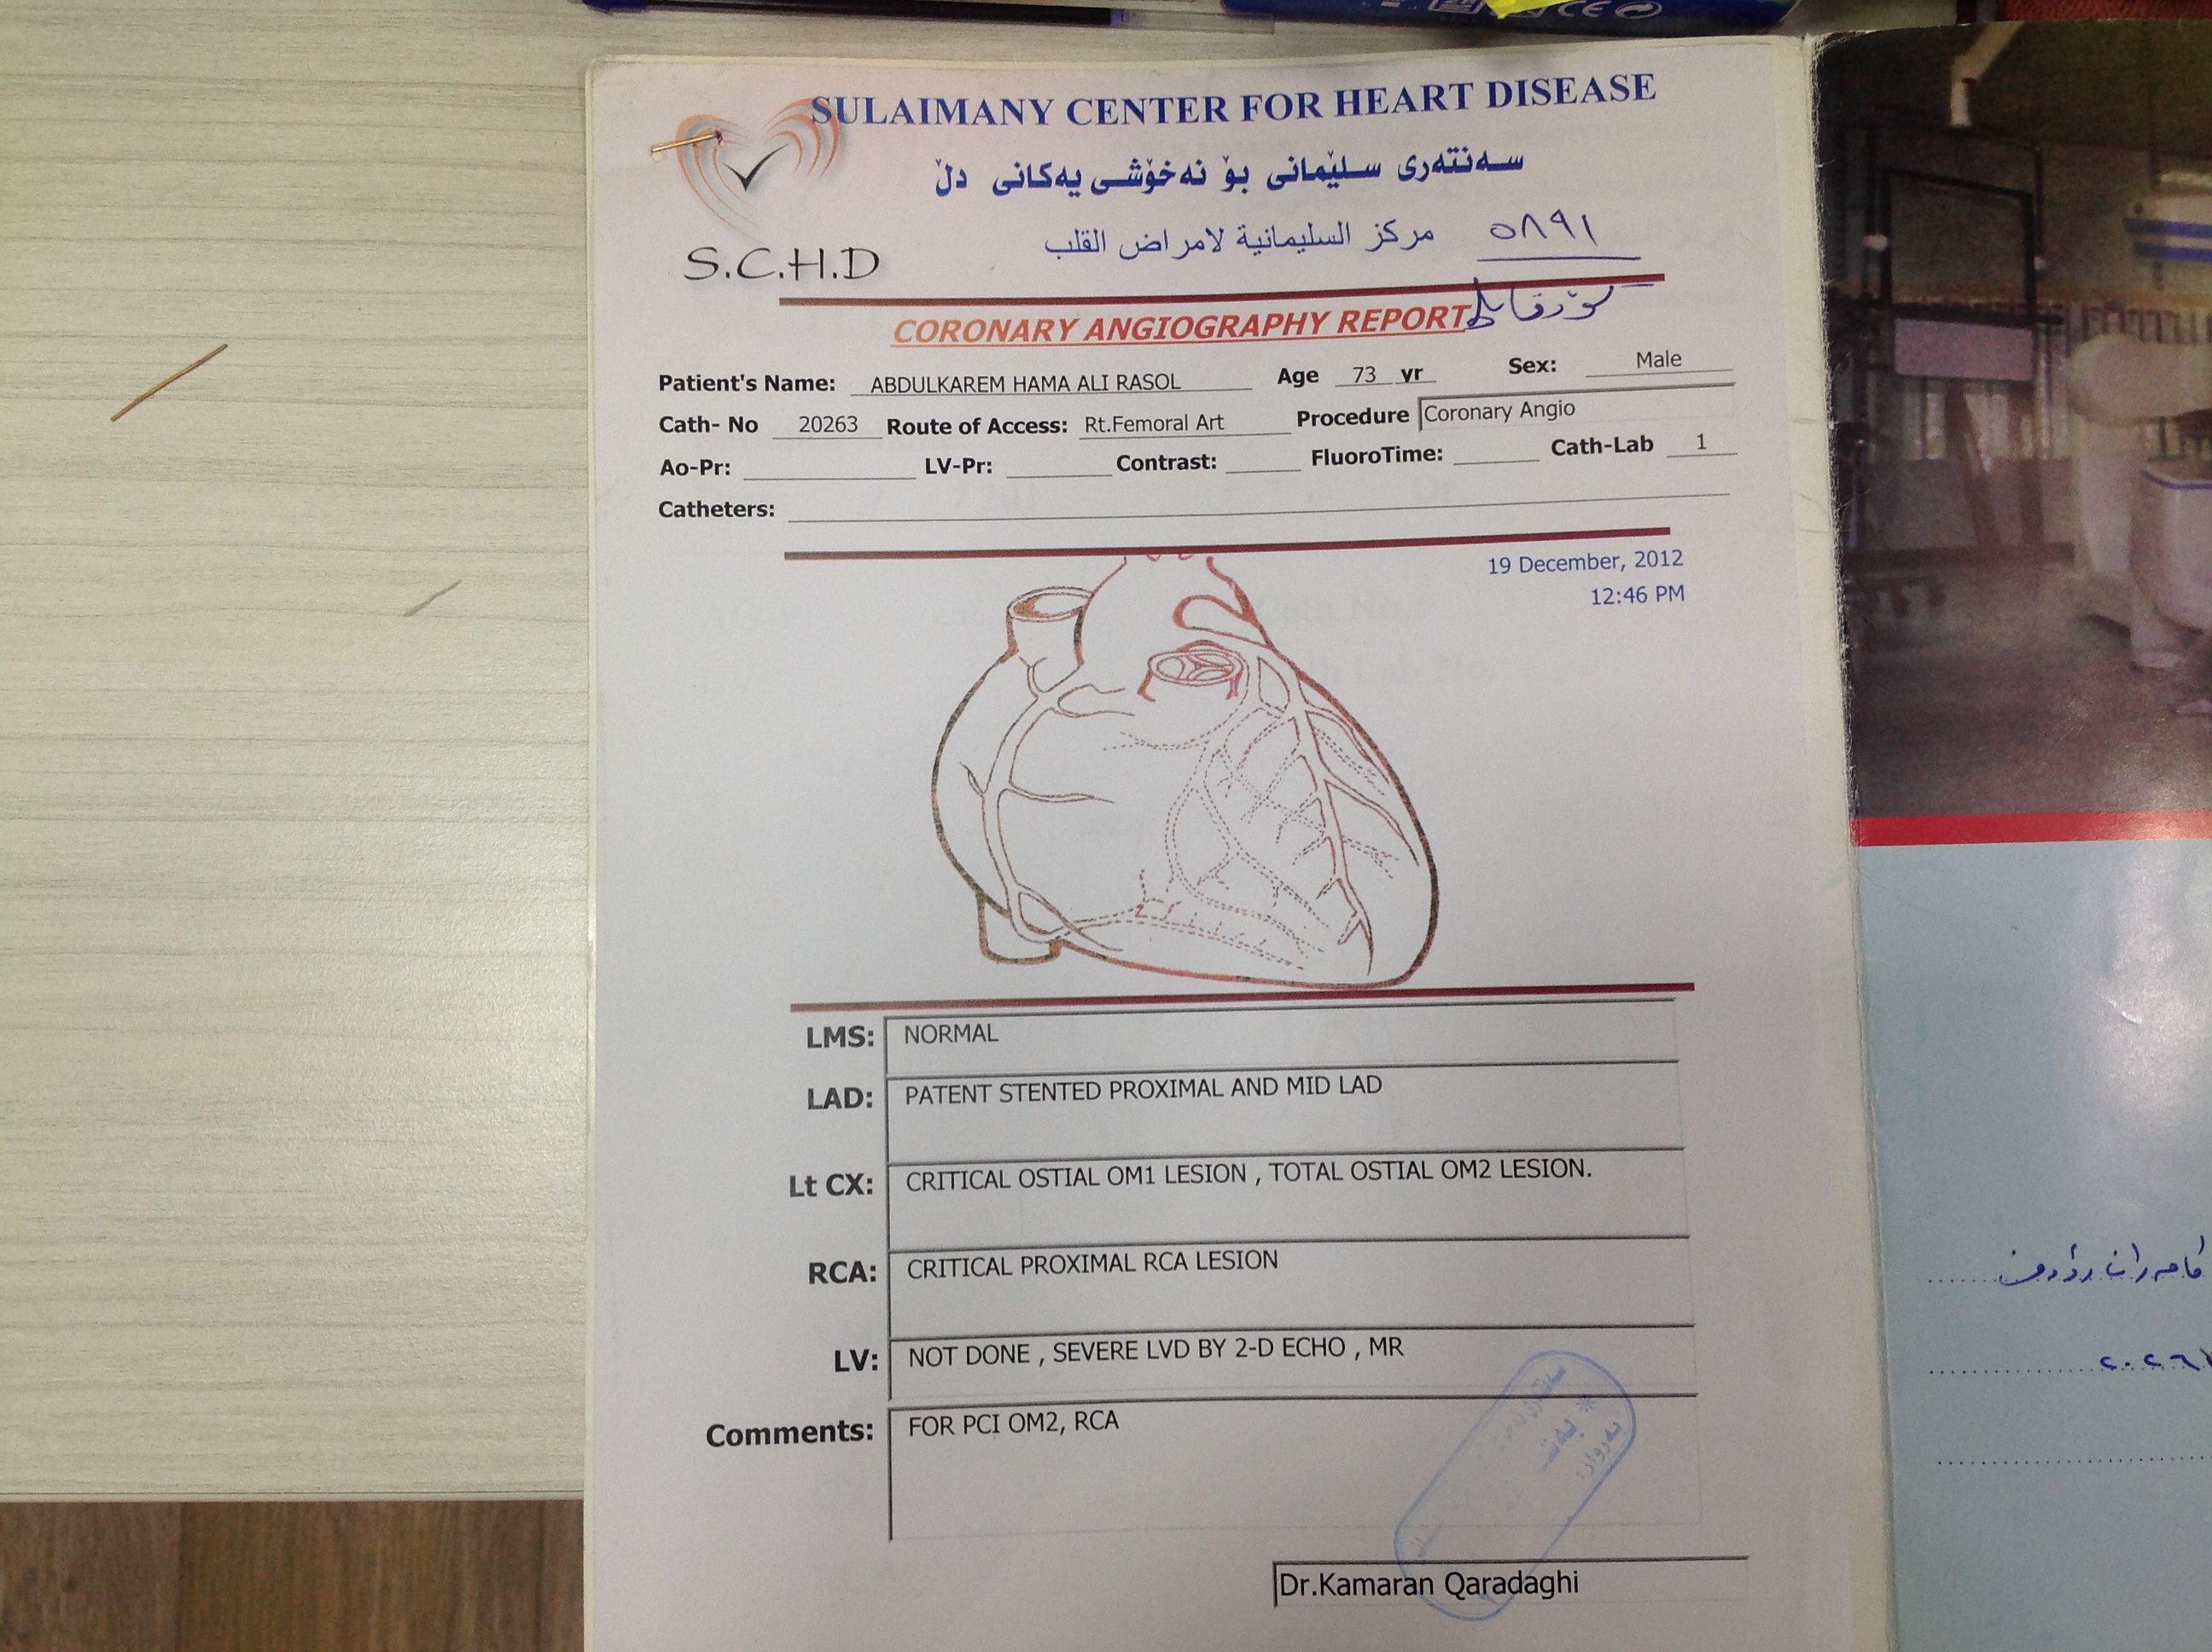 CE
SULAIMANY CENTER FOR HEART DISEASE
سەنتەری سلێمانی بۆ نەخۆشی یەکانی دڵ
مركز السليمانية لامراض القلب ٥٨٩١
S.C.H.D
CORONARY ANGIOGRAPHY REPORT
Patient's Name: ABDULKAREM HAMA ALI RASOL Age 73 yr Sex: Male
Cath- No 20263 Route of Access: Rt.Femoral Art Procedure Coronary Angio
Ao-Pr: LV-Pr: Contrast: FluoroTime: Cath-Lab 1
Catheters:
19 December, 2012
12:46 PM
LMS: NORMAL
LAD: PATENT STENTED PROXIMAL AND MID LAD
Lt CX: CRITICAL OSTIAL OM1 LESION , TOTAL OSTIAL OM2 LESION.
RCA: CRITICAL PROXIMAL RCA LESION
LV: NOT DONE , SEVERE LVD BY 2-D ECHO , MR
Comments: FOR PCI OM2, RCA
بەروار:
Dr.Kamaran Qaradaghi